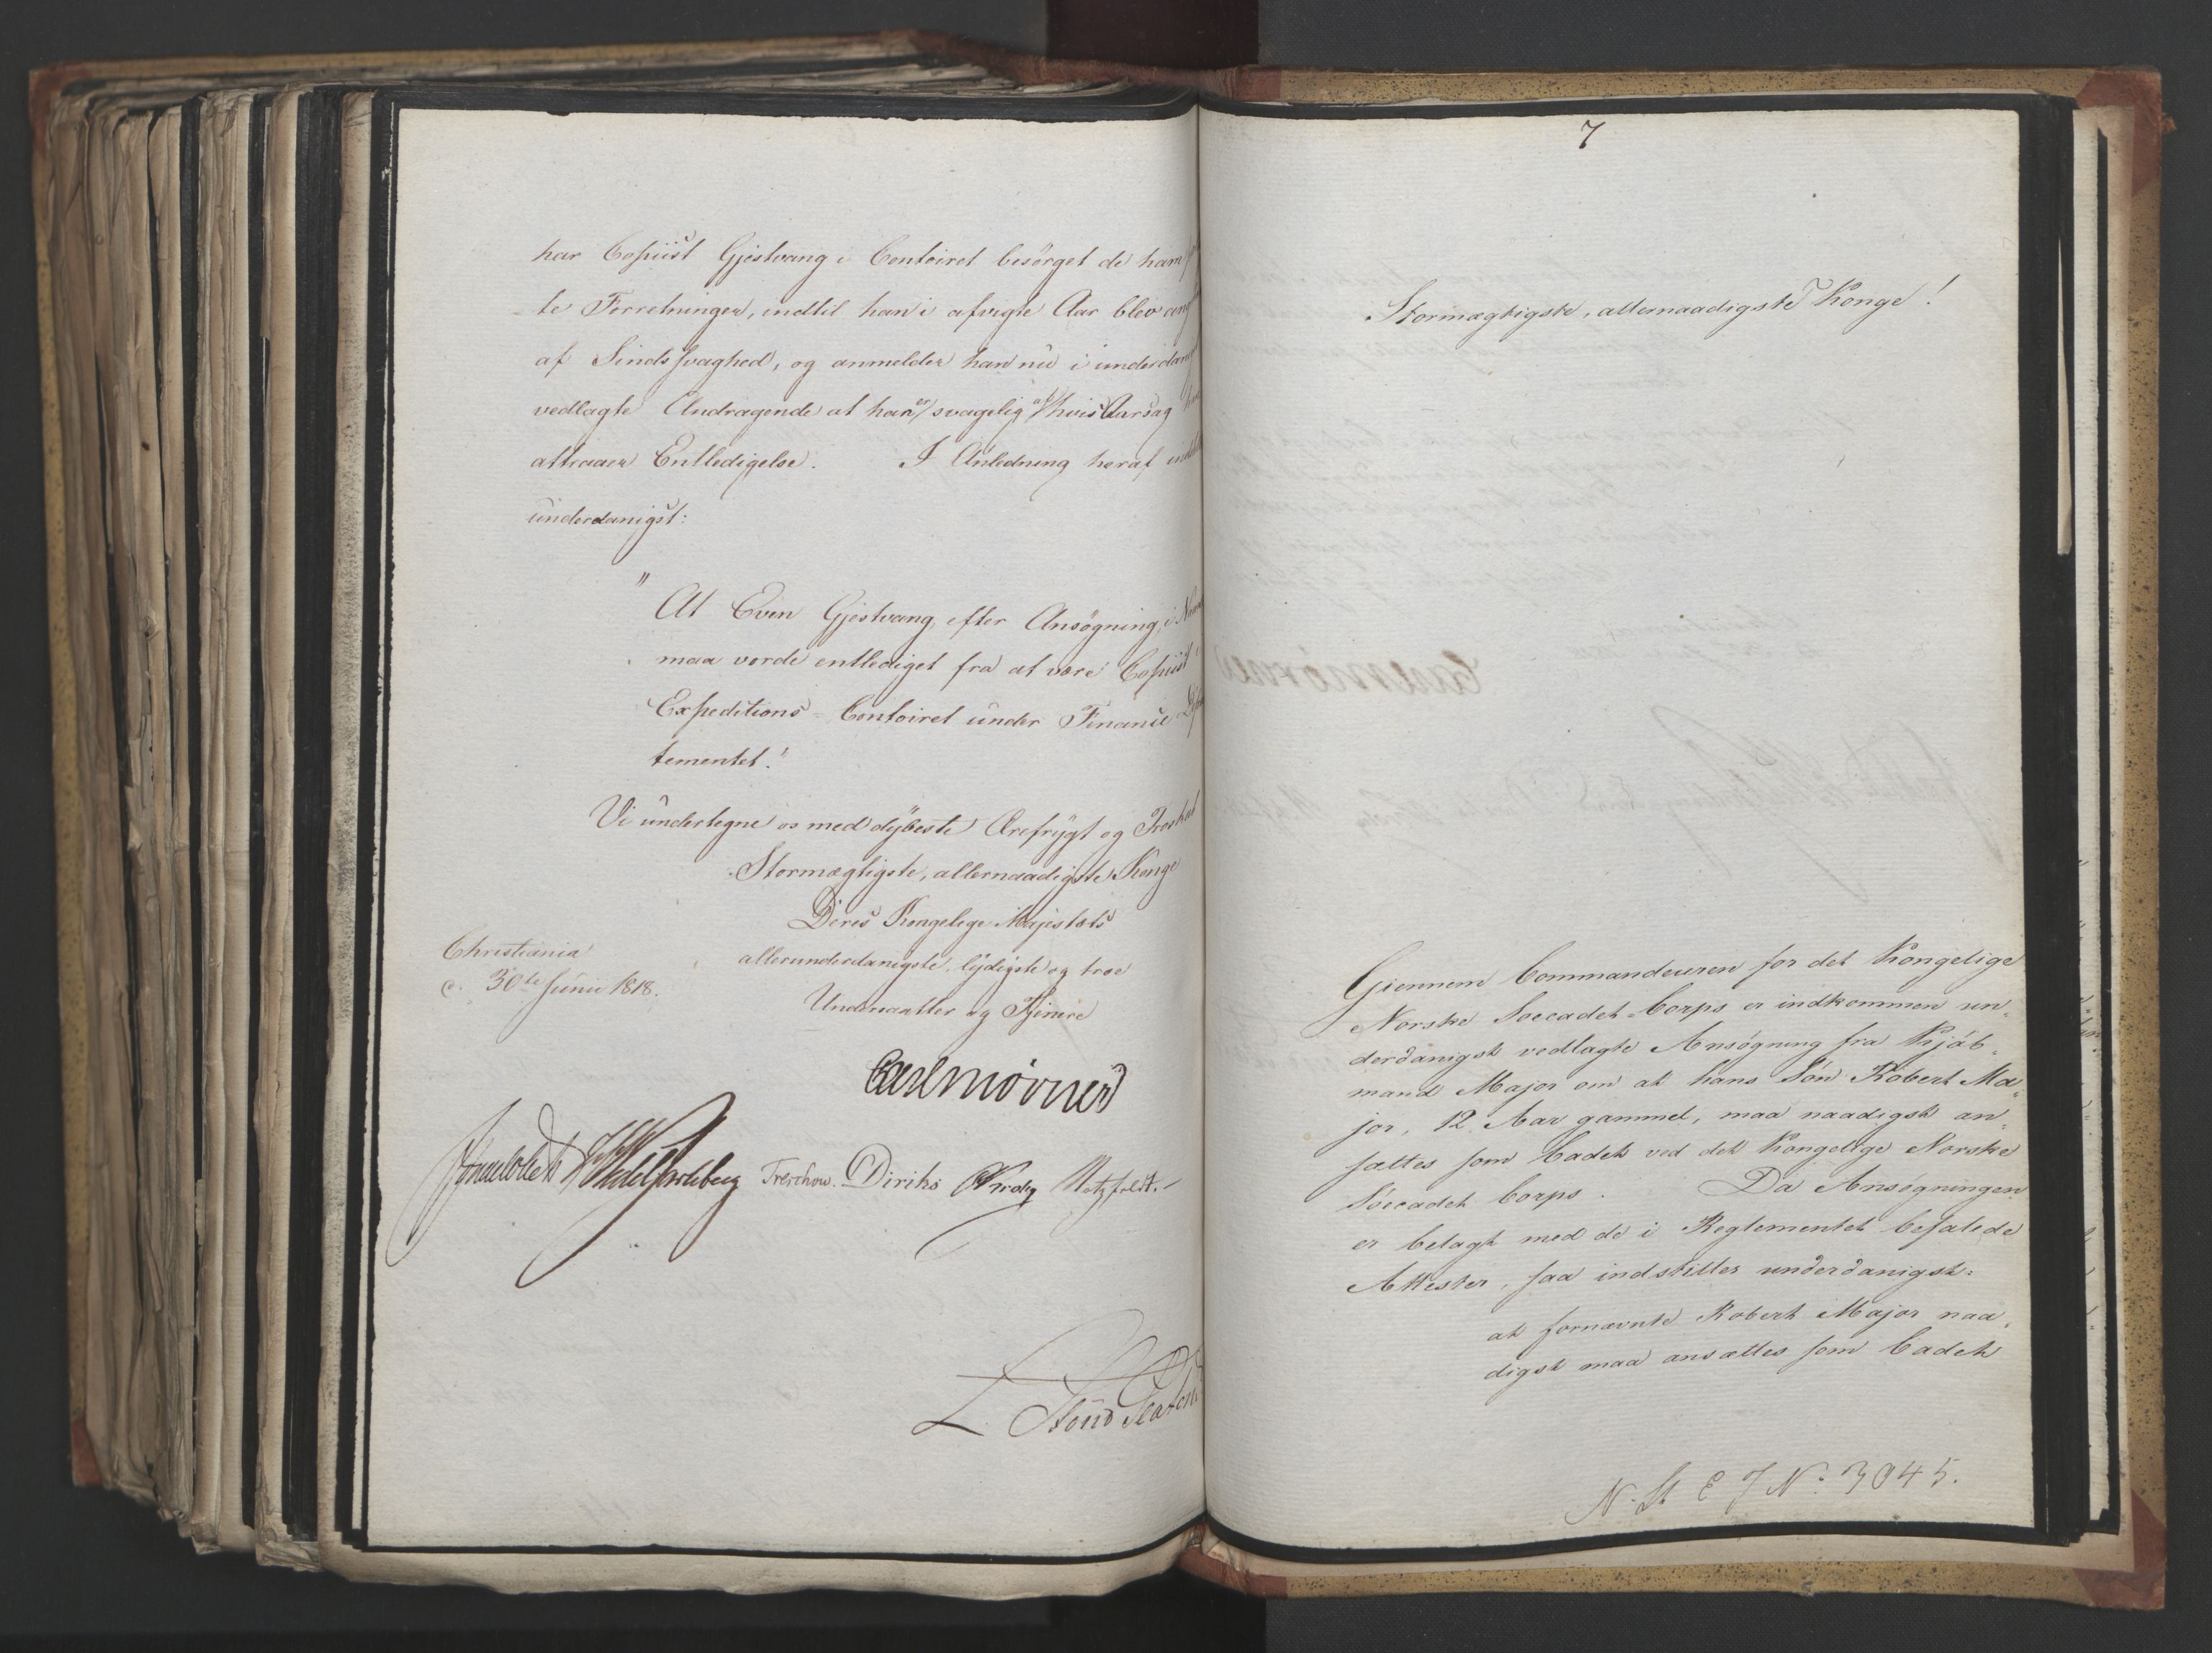 har Copiist Gjestvang i Contoiret besörget de ham
te Forretninger, indtil han i afvigte Aar blev
af Sindssvaghed, og anmelder han nu i
vedlagte Andragende at han er svagelig af hvis Aarsag
attraaer Entledigelse. I Anledning heraf
underdanigst:
" At Even Gjestvang, efter Ansögning, i
maa vorde entlediget fra at være Copiist
Expeditions-Contoiret under Finance
tementet."
Vi undertegne os med dybeste Ærefrygt og Troskab
Stormægtigste, allernaadigste Konge
Deres Kongelige Majestæts
allerunderdanigste, lydigste og troe
Undersaatter og Tjenere
Christiania
d. 30te Junii 1818.
Carl Mörner
Sommerfeldt Wedel Jarlsberg Treschow. Diriks Krog Motzfeldt.
L. Stoud Platou
7
Stormægtigste, allernaadigste Konge!
Giennem Commandeuren for det Kongelige
Norske Soecadet-Corps er indkommen un-
derdanigst vedlagte Ansögning fra Kjöb-
mand Major om at hans Sön Robert Ma-
jor, 12 Aar gammel, maa naadigst an-
sættes som Cadet ved det Kongelige Norske
Söecadet Corps. Da Ansögningen
er belagt med de i Reglementet befalede
Attester, saa indstilles underdanigst:
at fornævnte Robert Major naa-
digst maa ansættes som Cadet
N. St E J No 3045.